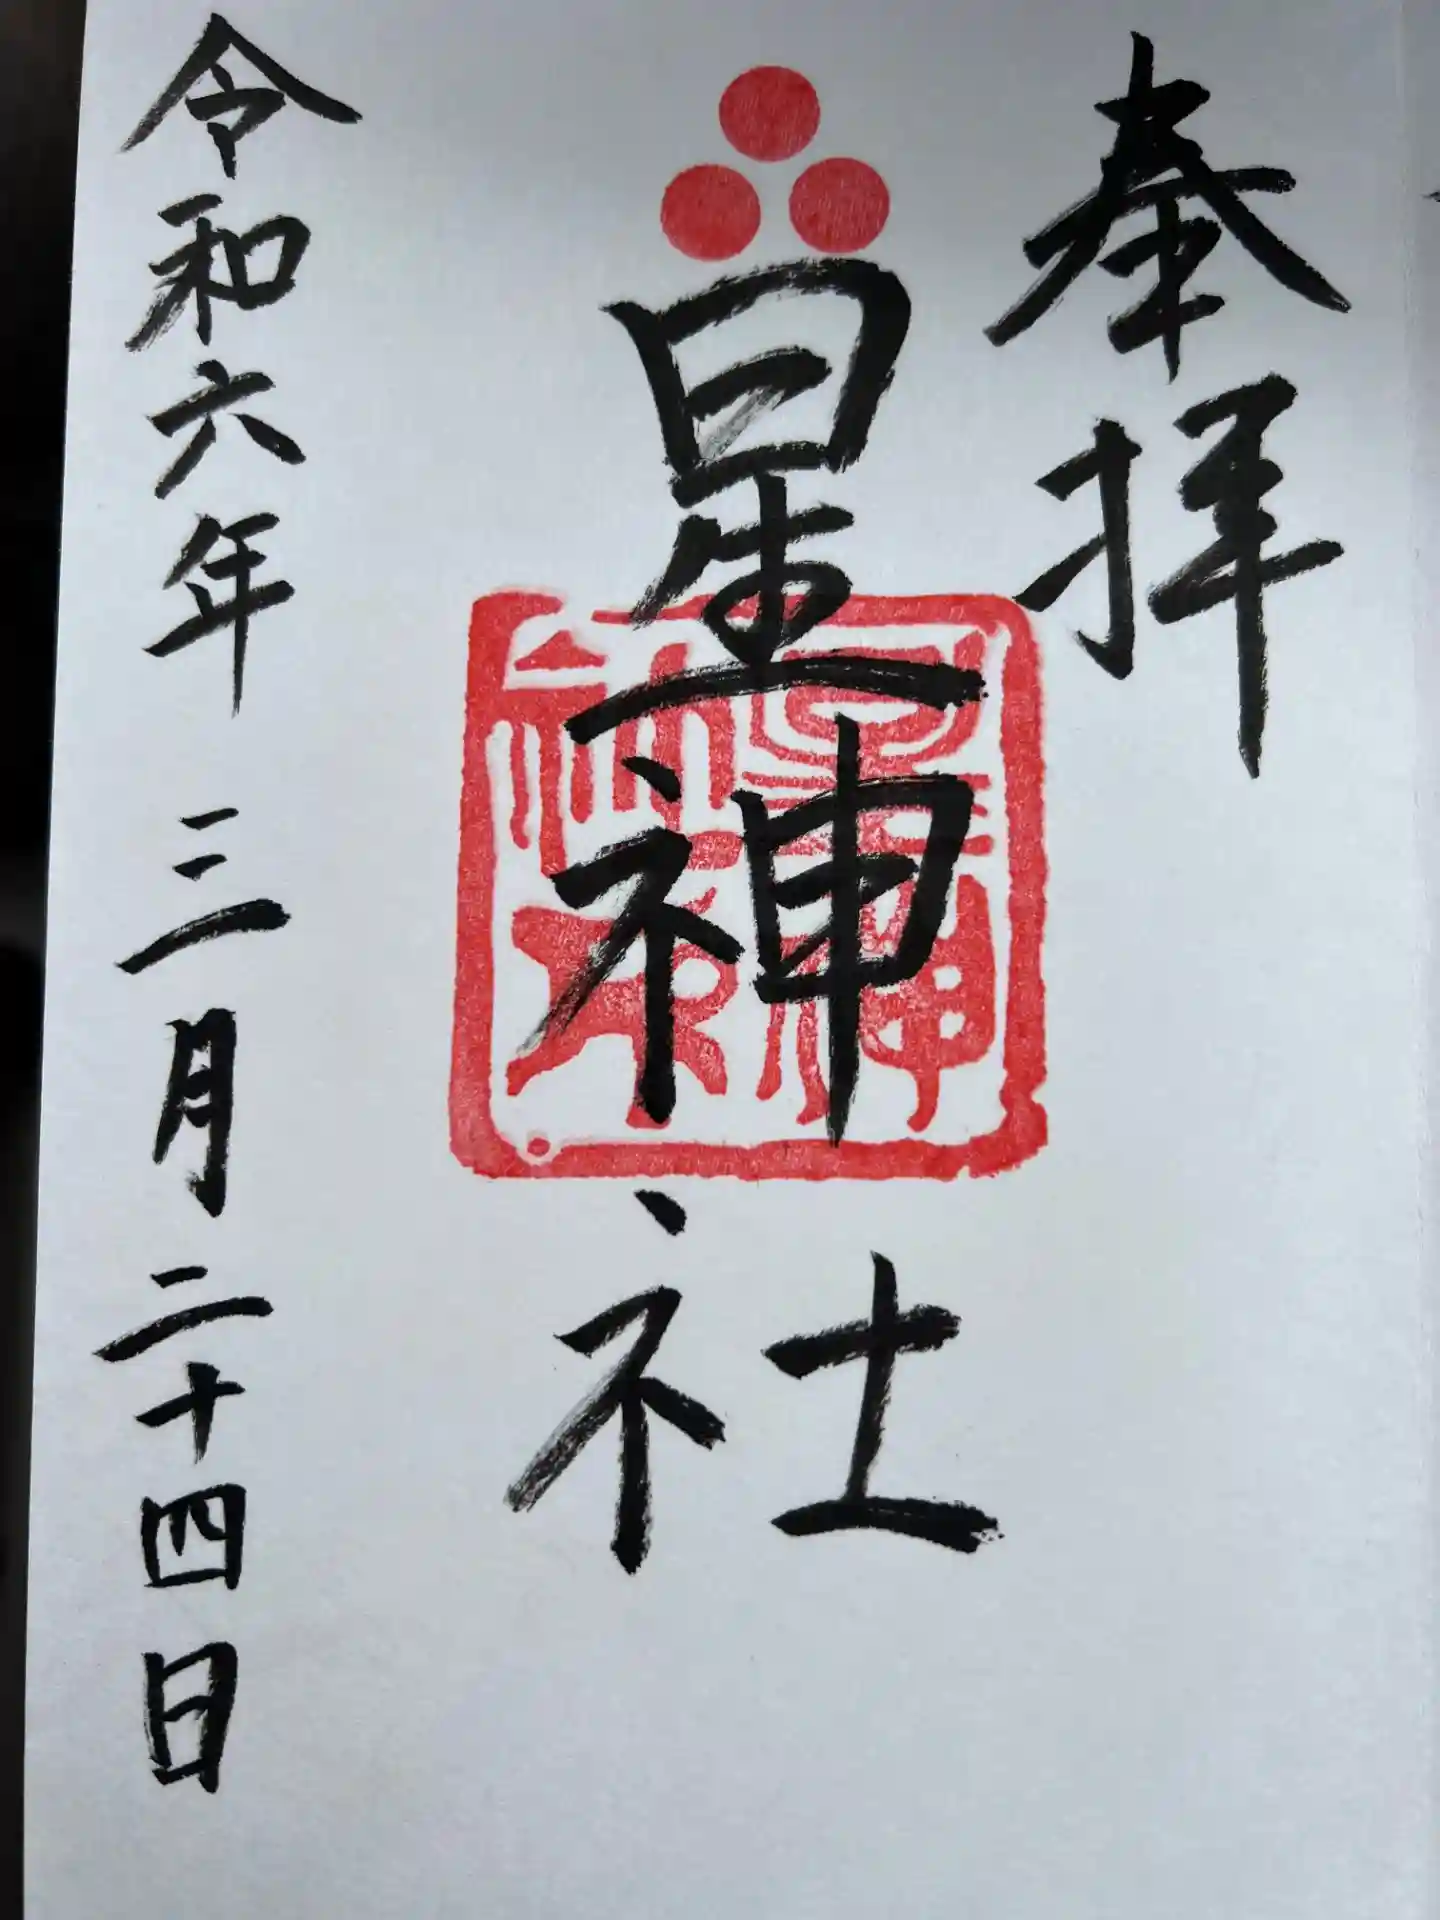 奉拝
星神社
令和六年三月二十四日